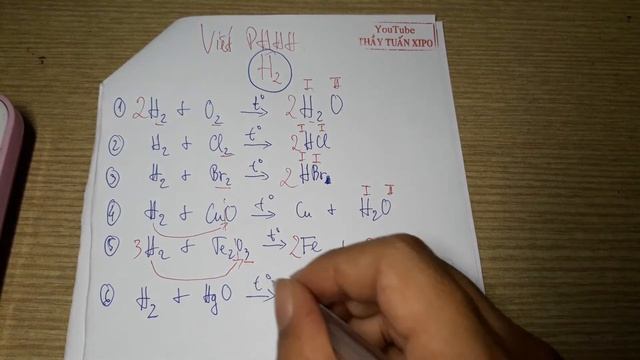 Viết PHHH
YouTube
THẦY TUẤN XIPO
H₂
① 2H₂ + O₂ —t°→ 2H₂O
② H₂ + Cl₂ —t°→ 2HCl
③ H₂ + Br₂ —t°→ 2HBr
④ H₂ + CuO —t°→ Cu + H₂O
⑤ 3H₂ + Fe₂O₃ —t°→ 2Fe +
⑥ H₂ + HgO —t°→